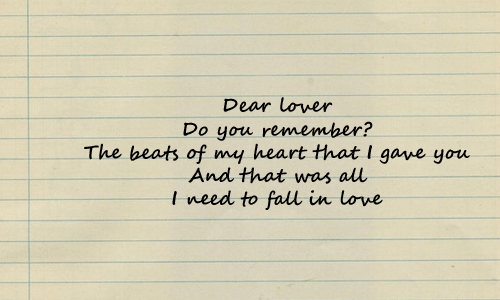 Dear lover
Do you remember?
The beats of my heart that I gave you
And that was all
I need to fall in love